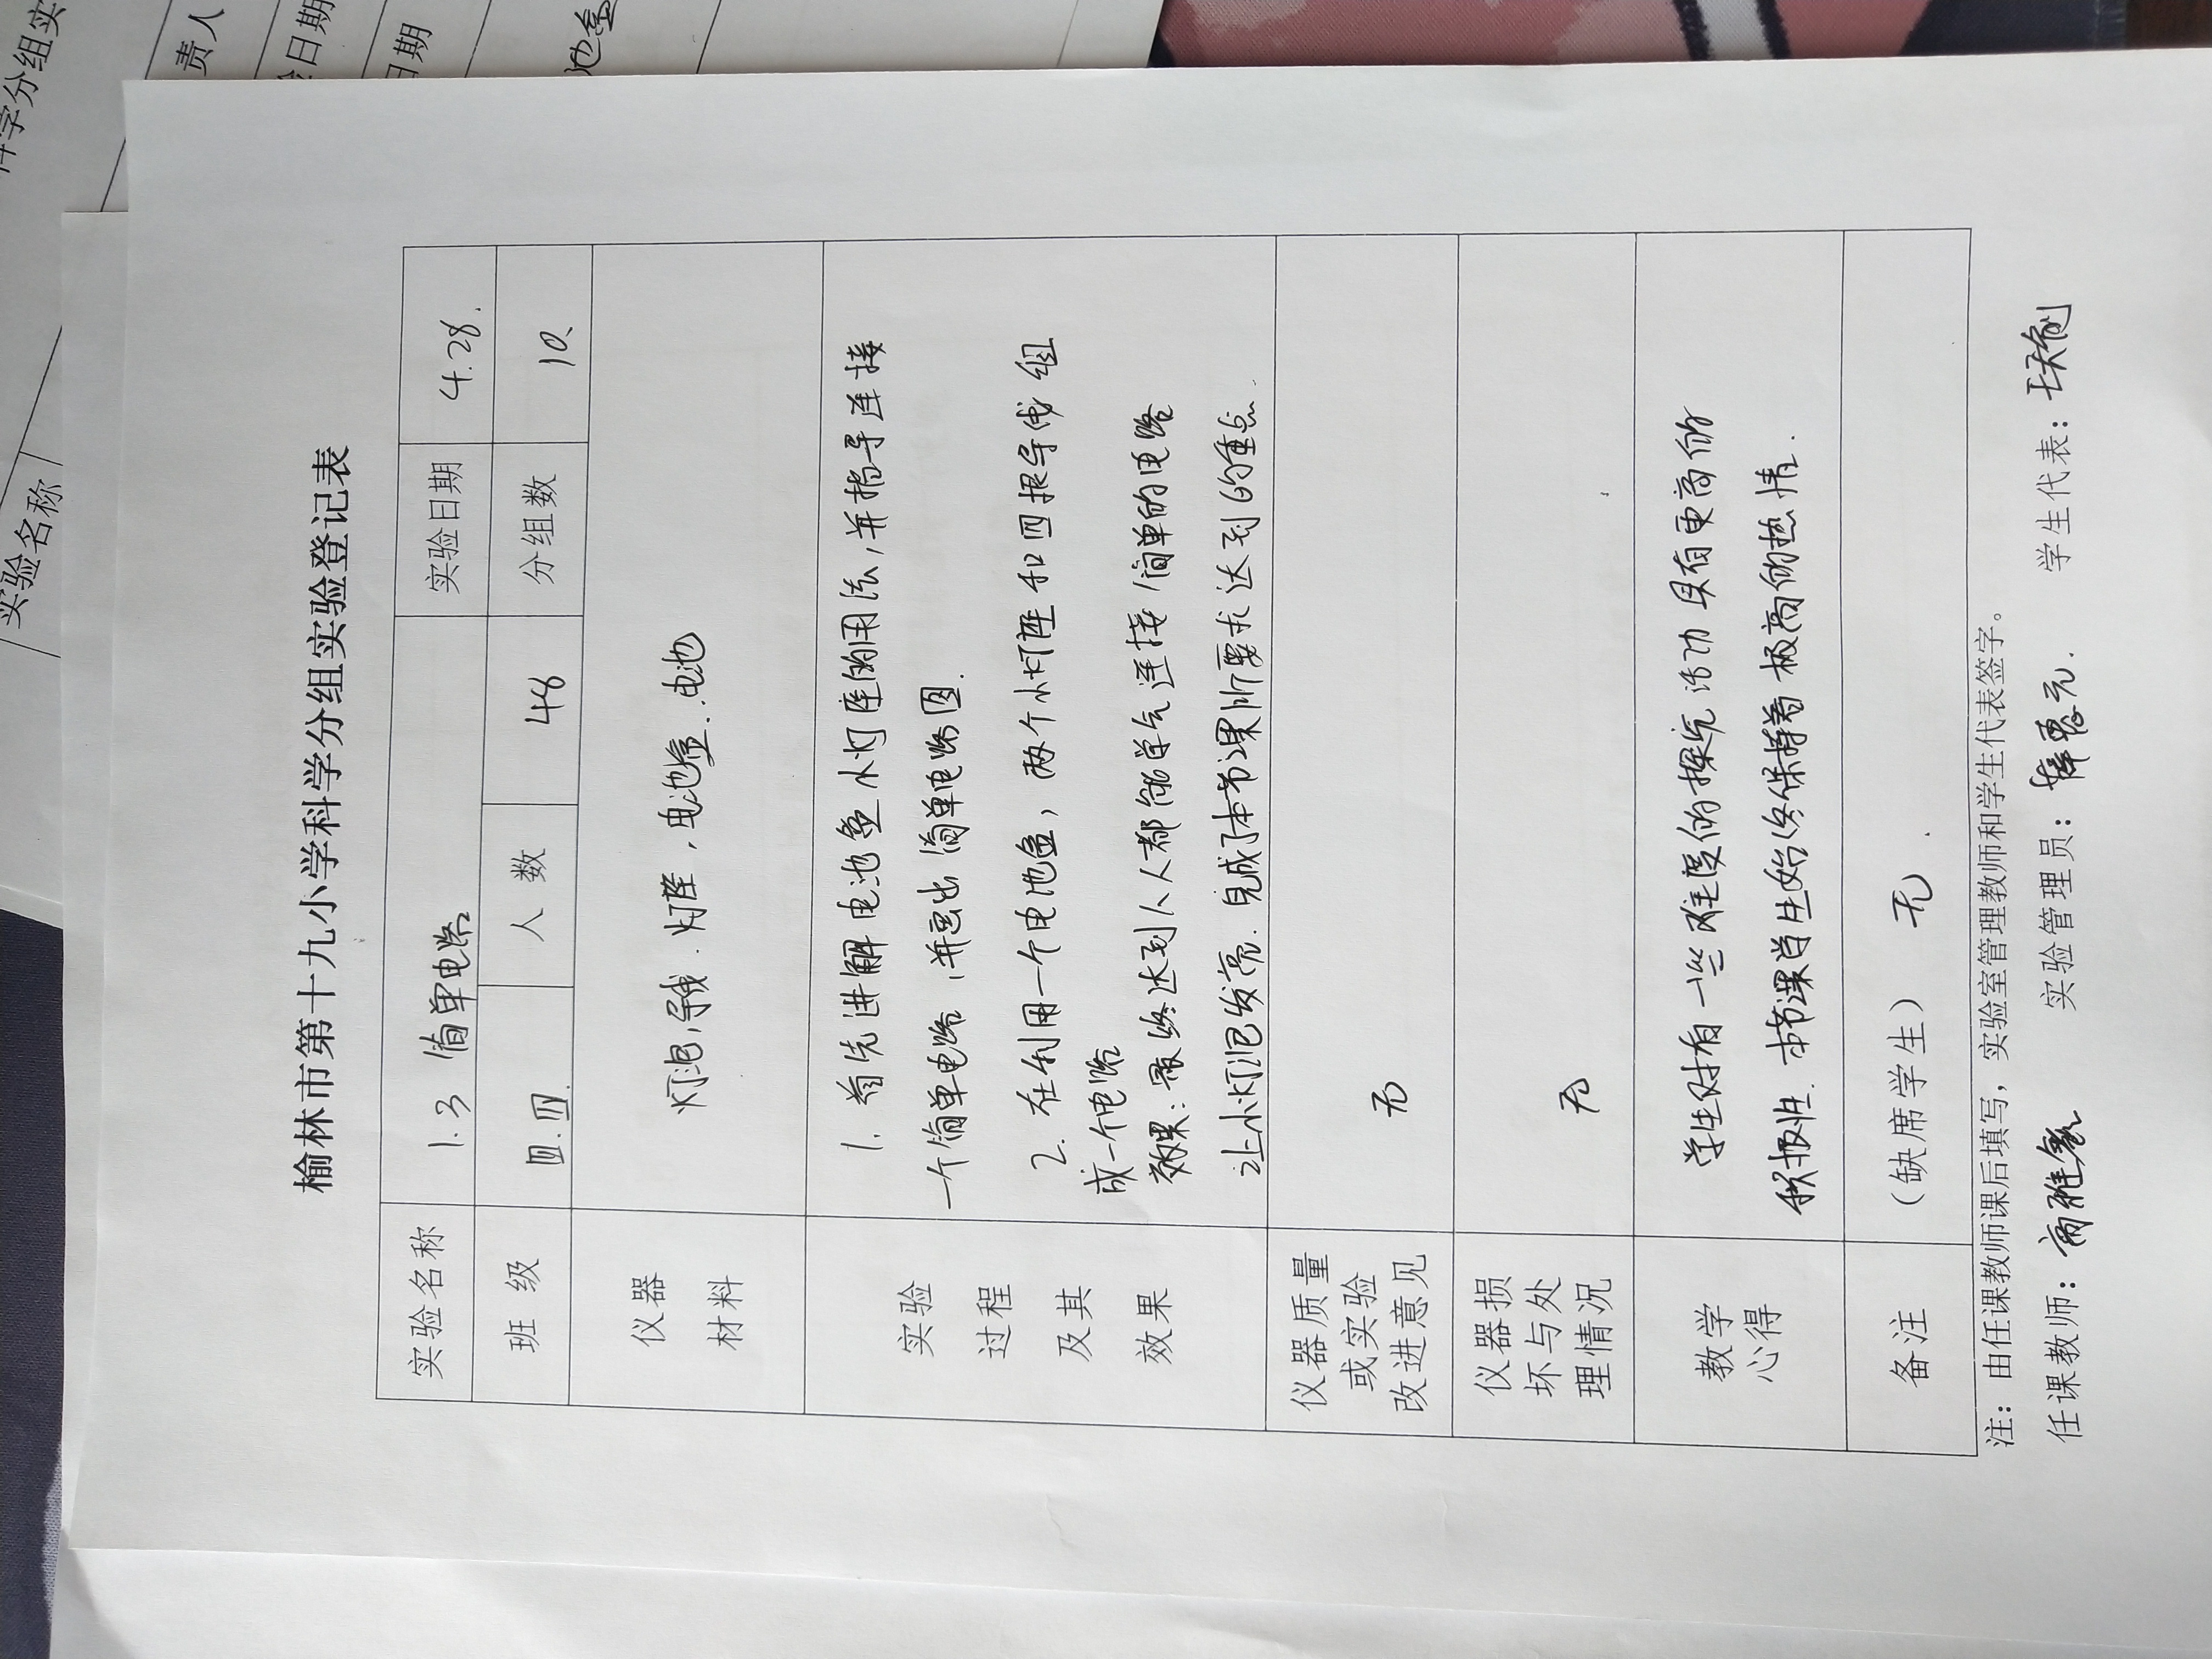 榆林市第十九小学科学分组实验登记表
实验名称 1.3 简单电路 实验日期 4.28.
班 级 四.四. 人 数 48 分组数 10
仪器
材料
灯泡,导线.灯座,电池盒.电池
实验
过程
及其
效果
1. 首先讲解电池盒小灯座的用法,并指导连接
一个简单电路,并画出简单电路图.
2. 在利用一个电池盒,两个小灯座和四根导线组
成一个电路
效果:最终达到人人都能学会连接简单的电路
让小灯泡发亮.完成了本节课所要求达到的重点.
仪器质量
或实验
改进意见
无
仪器损
坏与处
理情况
无
教学
心得
学生对有一些难度的探究活动具有更高的
积极性.本节课学生始终保持着极高的热情.
备注
(缺席学生) 无.
注:由任课教师课后填写,实验室管理教师和学生代表签字。
任课教师: 实验管理员: 学生代表:
实验名称
责人
日期
日期
池盒
学分组实